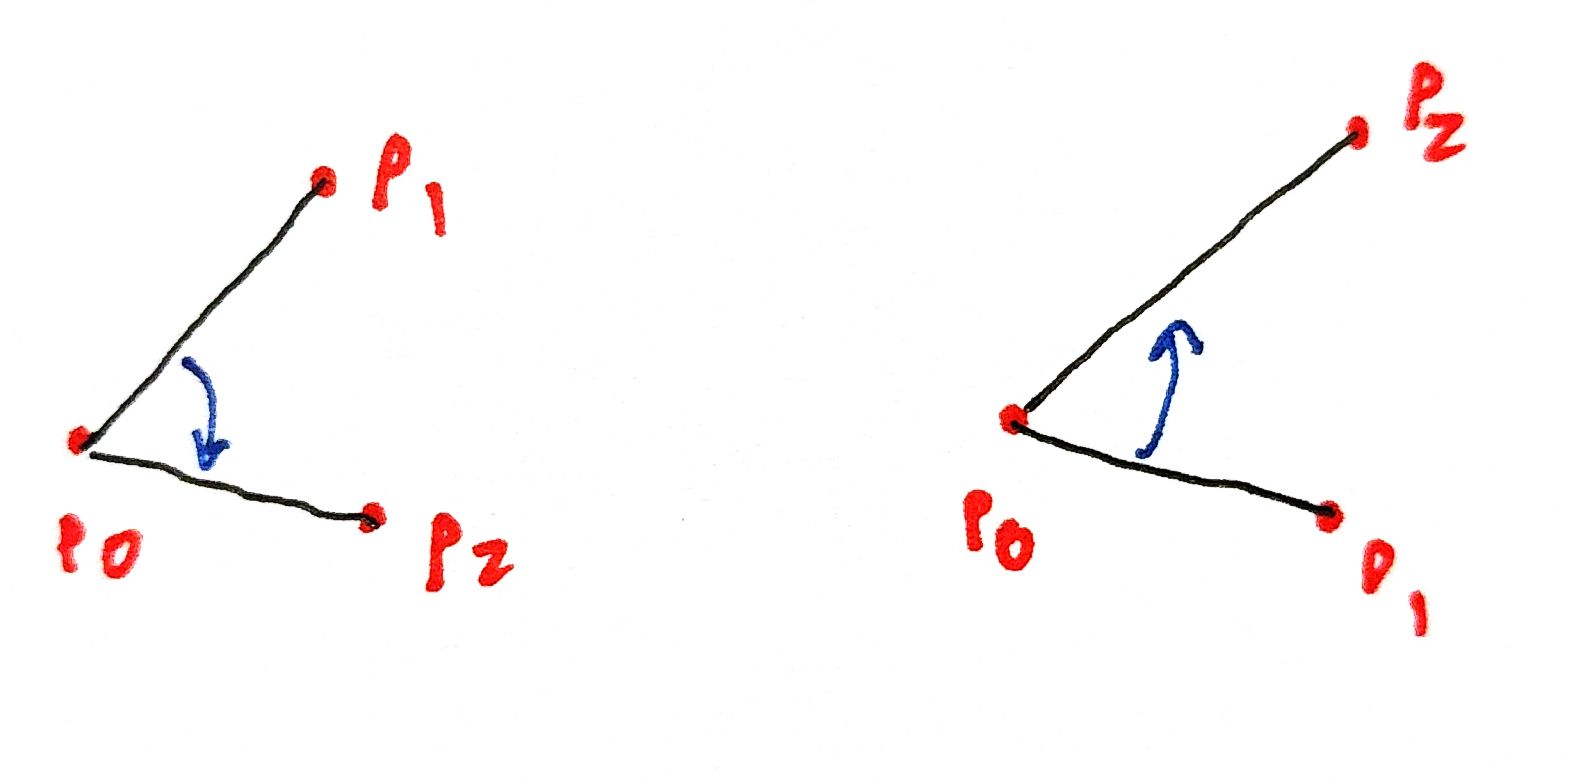 P1
P0
P2
P2
P0
P1